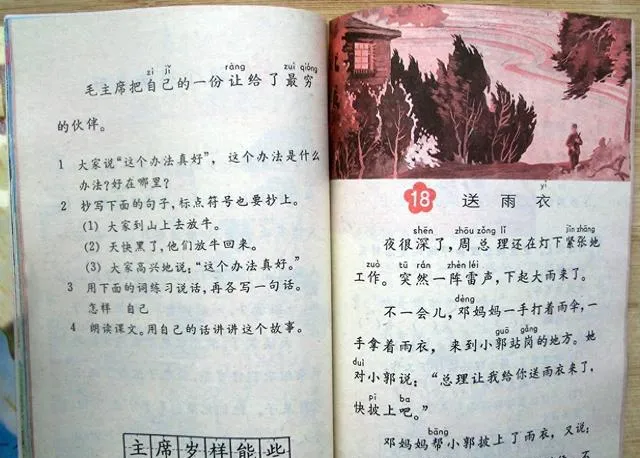 zì jǐ ràng zuì qióng
毛主席把自己的一份让给了最穷
的伙伴。
1 大家说“这个办法真好”，这个办法是什么
办法？好在哪里？
2 抄写下面的句子，标点符号也要抄上。
(1) 大家到山上去放牛。
(2) 天快黑了，他们放牛回来。
(3) 大家高兴地说：“这个办法真好。”
3 用下面的词练习说话，再各写一句话。
怎样 自己
4 朗读课文。用自己的话讲讲这个故事。
主席岁样能些
yī
18 送雨衣
shēn zhōu zǒng lǐ jǐn zhāng
夜很深了，周总理还在灯下紧张地
zuò tū rán zhèn léi
工作。突然一阵雷声，下起大雨来了。
dèng
不一会儿，邓妈妈一手打着雨伞，一
guō gǎng
手拿着雨衣，来到小郭站岗的地方。她
duì
对小郭说：“总理让我给你送雨衣来了，
pī ba
快披上吧。”
bāng
邓妈妈帮小郭披上了雨衣，又说：